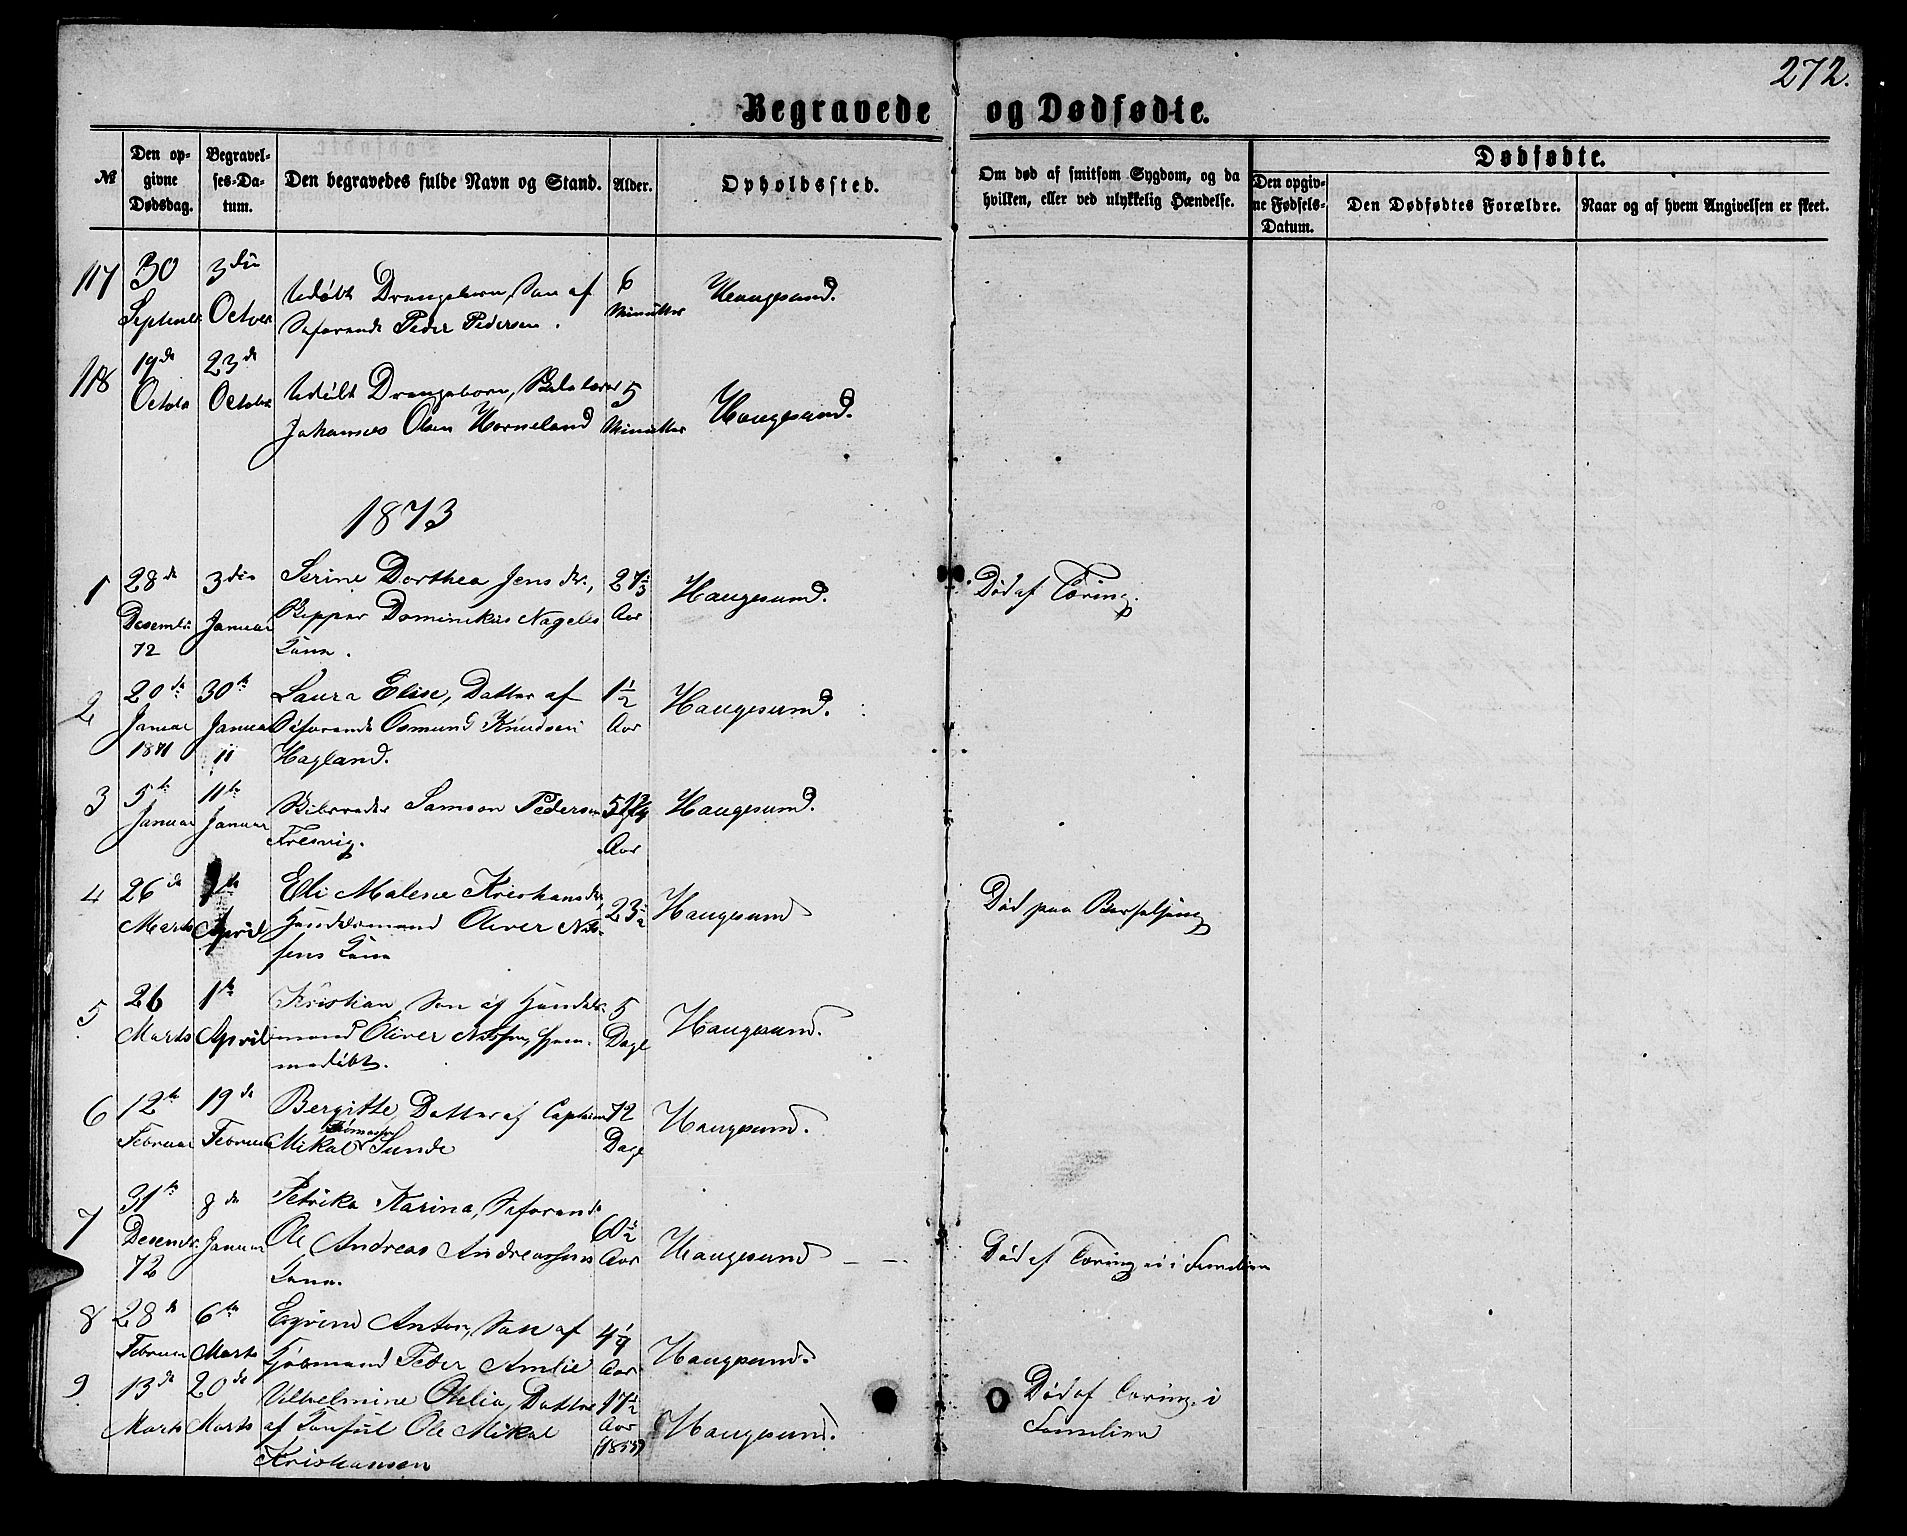 272.
Begravede og Dødfødte.
№
Den opgivne Dødsdag.
Begravelses-Datum.
Den begravedes fulde Navn og Stand.
Alder.
Opholdssted.
Om død af smitsom Sygdom, og da hvilken, eller ved ulykkelig Hændelse.
Dødfødte.
Den opgivne Fødsels-Datum.
Den Dødfødtes Forældre.
Naar og af hvem Angivelsen er skeet.
117 30 3die Udøbt Drengebarn, Søn af 6 Haugesund.
Septembr October Søfarende Peder Pedersen. Minutter
118 19de 23de Udøbt Drengebarn, 5 Haugesund.
October October Johannes Olsen Horneland Minutter
1873
1 28de 3die Serine Dorthea Jensdtr., 27 Haugesund. Død af Tæring.
Desembr Januar Dominikus Nageles Aar
72 Kone.
2 20de 30te Laura Elise, Datter af 1½ Haugesund.
Januar Januar Søfarende Osmund Knudsen Aar
1871 11 Hagland.
3 5te 11te Samson Pedersen Haugesund.
Januar Januar Aar
4 26de 1te Eli Malene Kristiansdtr, 23½ Haugesund Død paa Barselseng
Marts April Handelsmand Oliver Nils-
sens Kone
5 26 1te Kristian, Søn af Handels- 5 Haugesund.
Marts April mand Oliver Nilssen, hjem- Dage
medøbt.
6 12te 19de Bergitte, Datter af Captain 12 Haugesund.
Februar Februar Mikal Tømassen Sunde Dage
7 31te 8de Petrika Karina, Søfarende 60½ Haugesund Død af Tæring ei i Familien
Desembr. Januar Ole Andreas Andreassens Aar
72 Kone.
8 28de 6te Eyvind Anton, Søn af 4¼ Haugesund.
Februar Marts Kjøbmand Peder Amlie Aar
9 13de 20de Vilhelmine Otelia, Datter 17½ Haugesund. Død af Tæring i
Marts Marts af Konsul Ole Mikal Aar Familien
Kristiansen (1855)